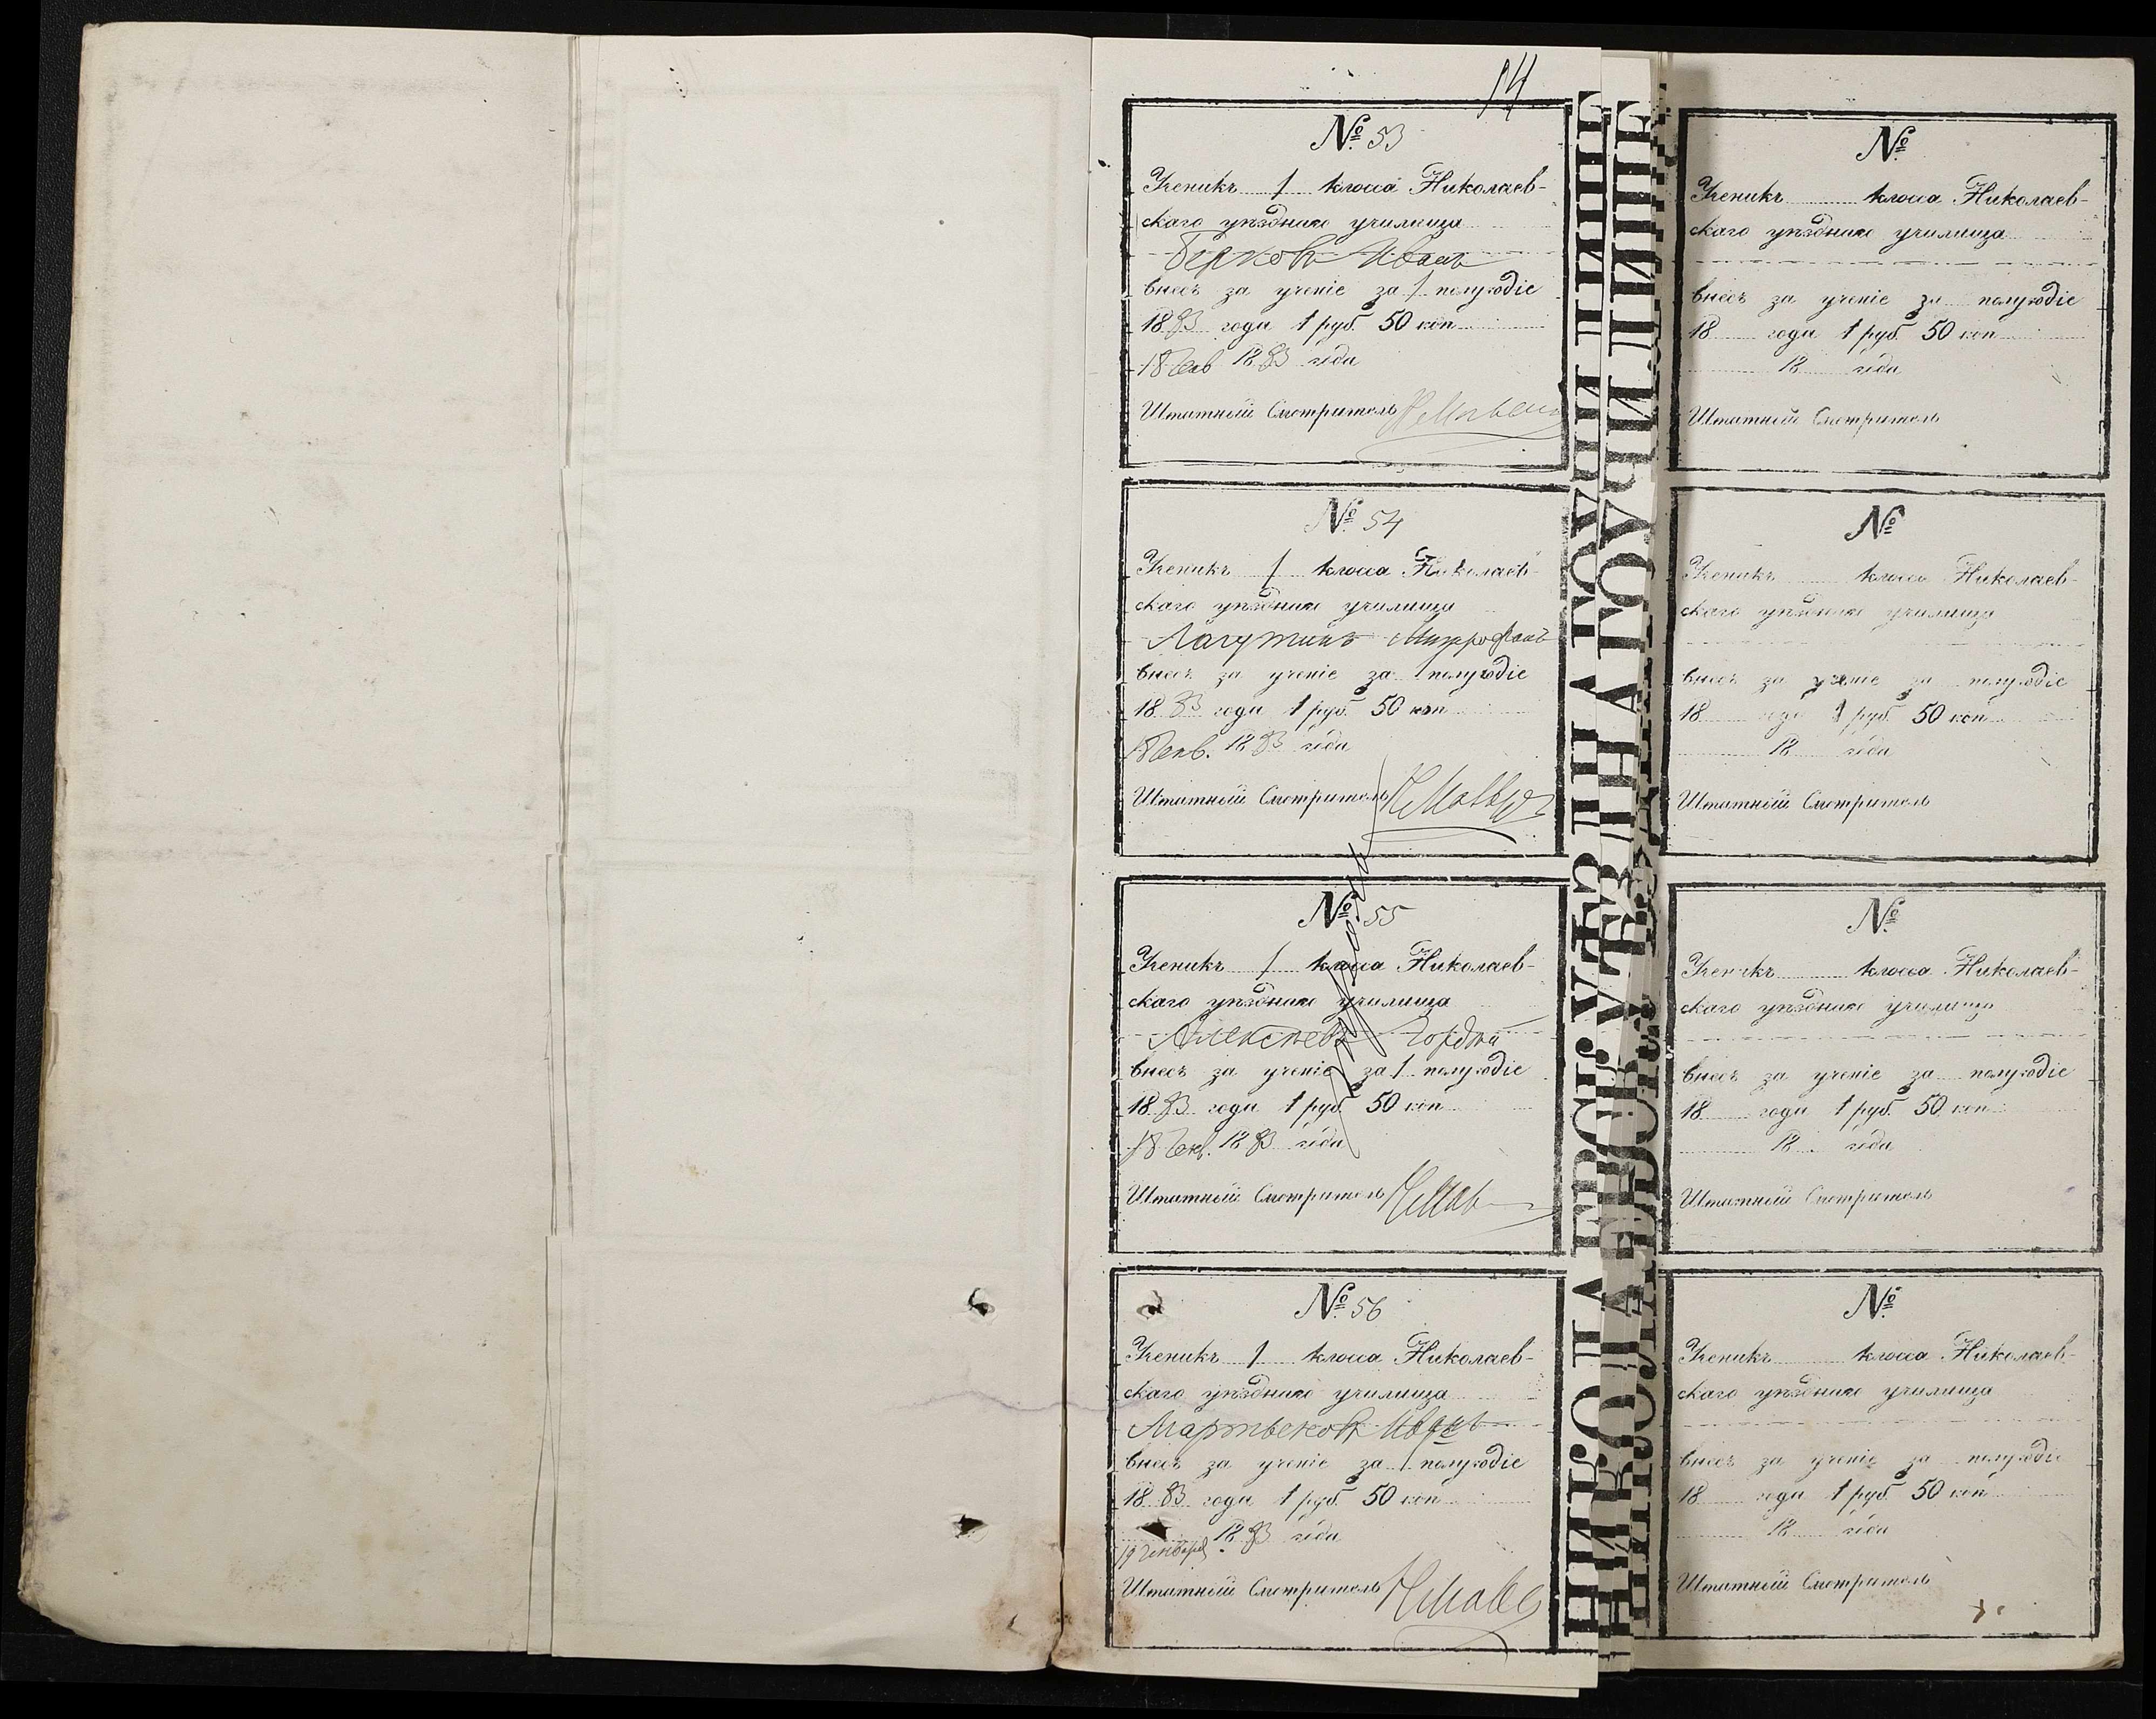 14
№ 53
Ученикъ 1 класса Николаев-
скаго уѣзднаго училища
Иванъ
внесъ за ученіе за 1 полугодіе
1883 года 1 руб. 50 коп
18 Генв 1883 года
Штатный Смотритель
№ 54
Ученикъ 1 класса Николаев-
скаго уѣзднаго училища
Лагутинъ Митрофанъ
внесъ за ученіе за 1 полугодіе
1883 года 1 руб. 50 коп
18 Генв. 1883 года
Штатный Смотритель
№ 55
Ученикъ 1 класса Николаев-
скаго уѣзднаго училища
Алексѣевъ Гордѣй
внесъ за ученіе за 1 полугодіе
1883 года 1 руб. 50 коп
18 Генв. 1883 года
Штатный Смотритель
№ 56
Ученикъ 1 класса Николаев-
скаго уѣзднаго училища
Мартьяновъ Иванъ
внесъ за ученіе за 1 полугодіе
1883 года 1 руб. 50 коп
1883 года
19 Генваря
Штатный Смотритель
№
Ученикъ класса Николаев-
скаго уѣзднаго училища
внесъ за ученіе за полугодіе
18 года 1 руб. 50 коп
18 года
Штатный Смотритель
№
Ученикъ класса Николаев-
скаго уѣзднаго училища
внесъ за ученіе за полугодіе
18 года 1 руб. 50 коп
18 года
Штатный Смотритель
№
Ученикъ класса Николаев-
скаго уѣзднаго училища
внесъ за ученіе за полугодіе
18 года 1 руб. 50 коп
18 года
Штатный Смотритель
№
Ученикъ класса Николаев-
скаго уѣзднаго училища
внесъ за ученіе за полугодіе
18 года 1 руб. 50 коп
18 года
Штатный Смотритель